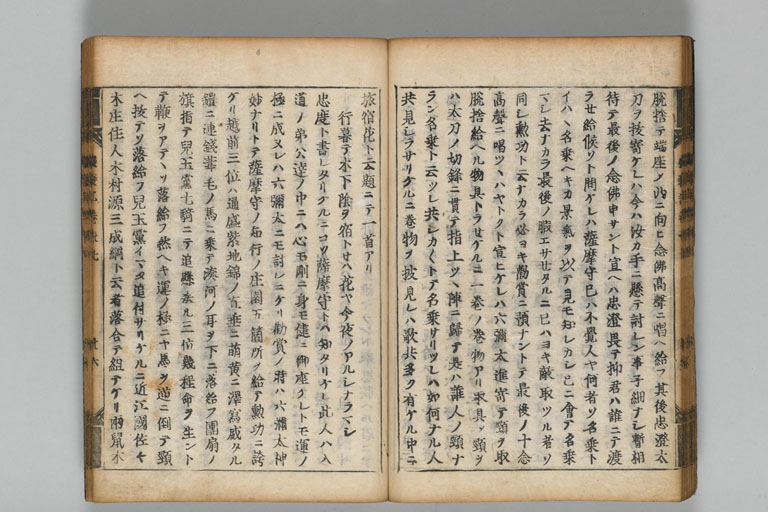 脱捨テ端座シ西ニ向ヒ念佛高聲ニ唱ヘ給フ其後忠澄太
刀ヲ拔寄ケレハ今ハ汝カ手ニ懸テ討レン事子細ナシ暫相
待テ最後ノ念佛申サント宣ヘハ忠澄畏テ抑君ハ誰ニテ渡
ラせ給候ソト問ケレハ薩摩守己ハ不覺人ヤ何者ソ名乗ト
イハヽ名乗ヘキカ景氣ヲ以テ見モ知レカシ己ニ會テ名乗
マシ去ナカラ最後ノ暇エサせタルニ己ハヨキ敵取ツル者ソ
同シ勲功ト云ナカラ必ヨキ勸賞ニ預ナントテ最後ノ十念
高聲ニ唱ツヽハヤトクト宣ヒケレハ六彌太進寄テ頸ヲ取
脱捨給ヘル物具トラせケルニ一巻ノ巻物アリ取具シ頸ヲ
ハ太刀ノ切鋒ニ貫テ指上ツヽ陣ニ歸テ是ハ誰人ノ頸ナ
ラン名乗ト云ツレ共シカ〱トテ名乗サリツレハ如何ナル人
共見シラサリケルニ巻物ヲ披見レハ歌共多ク有ケル中ニ
旅宿花ト云題ニテ一首アリ
行暮テ木下陰ヲ宿トせハ花ヤ今夜ノアルシナラマシ
忠度ト書レタリケルニコソ薩摩守トハ知タリケレ此人ハ入
道ノ弟公達ノ中ニハ心モ剛ニ身モ健ニ御座ケレトモ運ノ
極ニ成ヌレハ六彌太ニモ討レニケリ勸賞ノ時ハ六彌太神
妙ナリトテ薩摩守ノ知行ノ庄園五箇所ヲ給テ勲功ニ誇
ケリ越前三位ハ通盛紫地錦ノ直垂ニ萌黄ニ澤寫威タル
鎧ニ連錢葦毛ノ馬ニ乗テ湊河ノ耳ヲ下ニ落給フ團扇ノ
旗指テ兒玉黨七騎ニテ追懸奉ル三位幾程命ヲ生ント
テ鞭ヲアテヽソ落給フ然ヘキ運ノ極ニヤ馬ヲ逆ニ倒テ頸
ヘ拔テソ落給フ兒玉黨イマタ追付サリケルニ近江國佐々
木庄住人木村源三成綱ト云者落合テ組テケリ兩鼠木